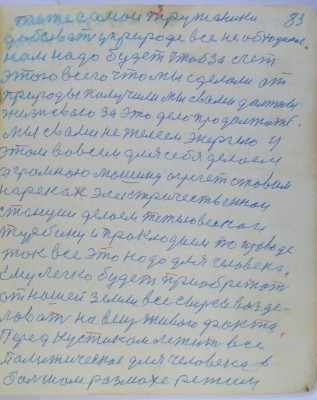 такие самои тружаники 83
добиват у природе все необходим
нам надо будет чтоб за счет
этого всего что мы сделали от
природы получили мы свами должны
жизн свою за это дело продолжить
мы свами не жалеем энергию и
этом вовсем для себя делаем
огромною машину агрегат ставим
на реках электрической
станции делаем
турбину и прокладуем по проводе
ток все это надо для человека.
Ему легко будет приобретат
от нашей земли все сирйо возде-
ловат на вещ живого факта.
Перед кустиком летит все
политическое для человека в
болшом размахе режим